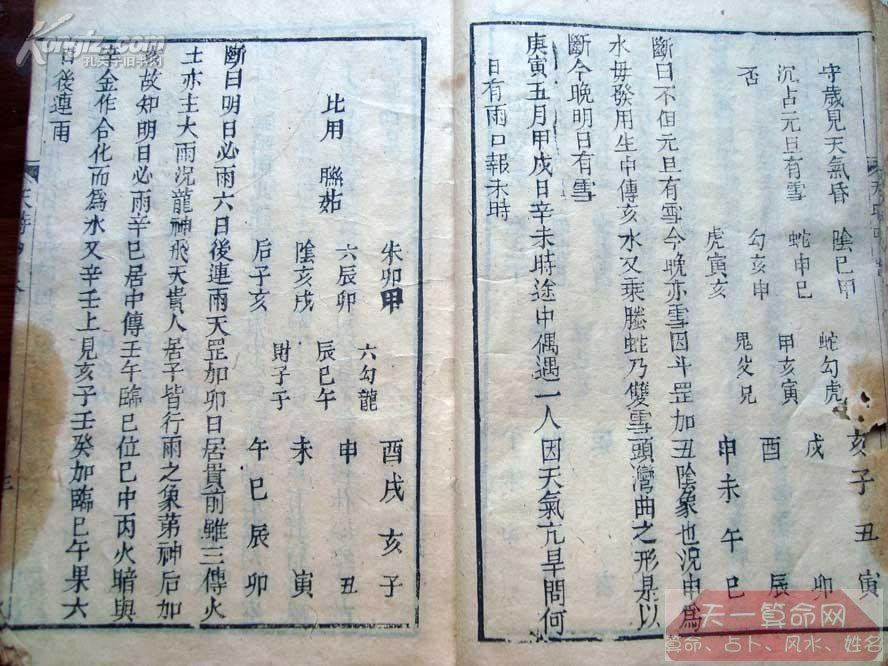 守歲見天氣昏 陰巳甲 蛇勾虎 亥子丑寅
沉占元旦有雪 蛇申巳 甲亥寅 戌 卯
否 勾亥申 鬼父兄 酉 辰
虎寅亥 申未午巳
斷曰不但元旦有雪今晚亦雪因斗罡加丑陰象也況申為
水母發用生中傳亥水又乘螣蛇乃雙雪頭灣曲之形是以
斷今晚明日有雪
庚寅五月甲戊日辛未時途中偶遇一人因天氣亢旱問何
日有雨口報未時
朱卯甲 六勾龍 酉戌亥子
比用 六辰卯 辰巳午 申 丑
聯茹 陰亥戌 未 寅
后子亥 財子子 午巳辰卯
斷曰明日必雨六日後連雨天罡加卯日居貴前雖三傳火
土亦主大雨況龍神飛天貴人居子皆行雨之象第神后加
故知明日必雨辛巳居中傳壬午臨巳位巳中丙火暗與
辛金作合化而為水又辛壬上見亥子壬癸加臨巳午果六
日後連雨
天時
Kongfz.com
孔夫子旧书网
天一算命网
算命、占卜、风水、姓名